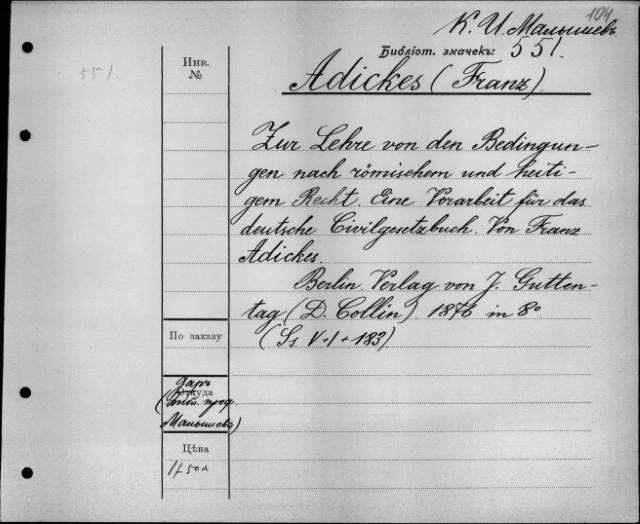 104
К. И. Малышевъ
Библіот. значекъ: 551.
551.
Инв.
№
Adickes (Franz).
Zur Lehre von den Bedingun-
gen nach römischem und heiti-
gem Recht. Eine Vorarbeit für das
deutsche Civilgesetzbuch. Von Franz
Adickes.
Berlin. Verlag von J. Gutten-
tag (D. Collin) 1876 in 8°
(Ss V+1+183)
По заказу
Даръ
Откуда
(Библ. проф.
Малышева)
Цѣна